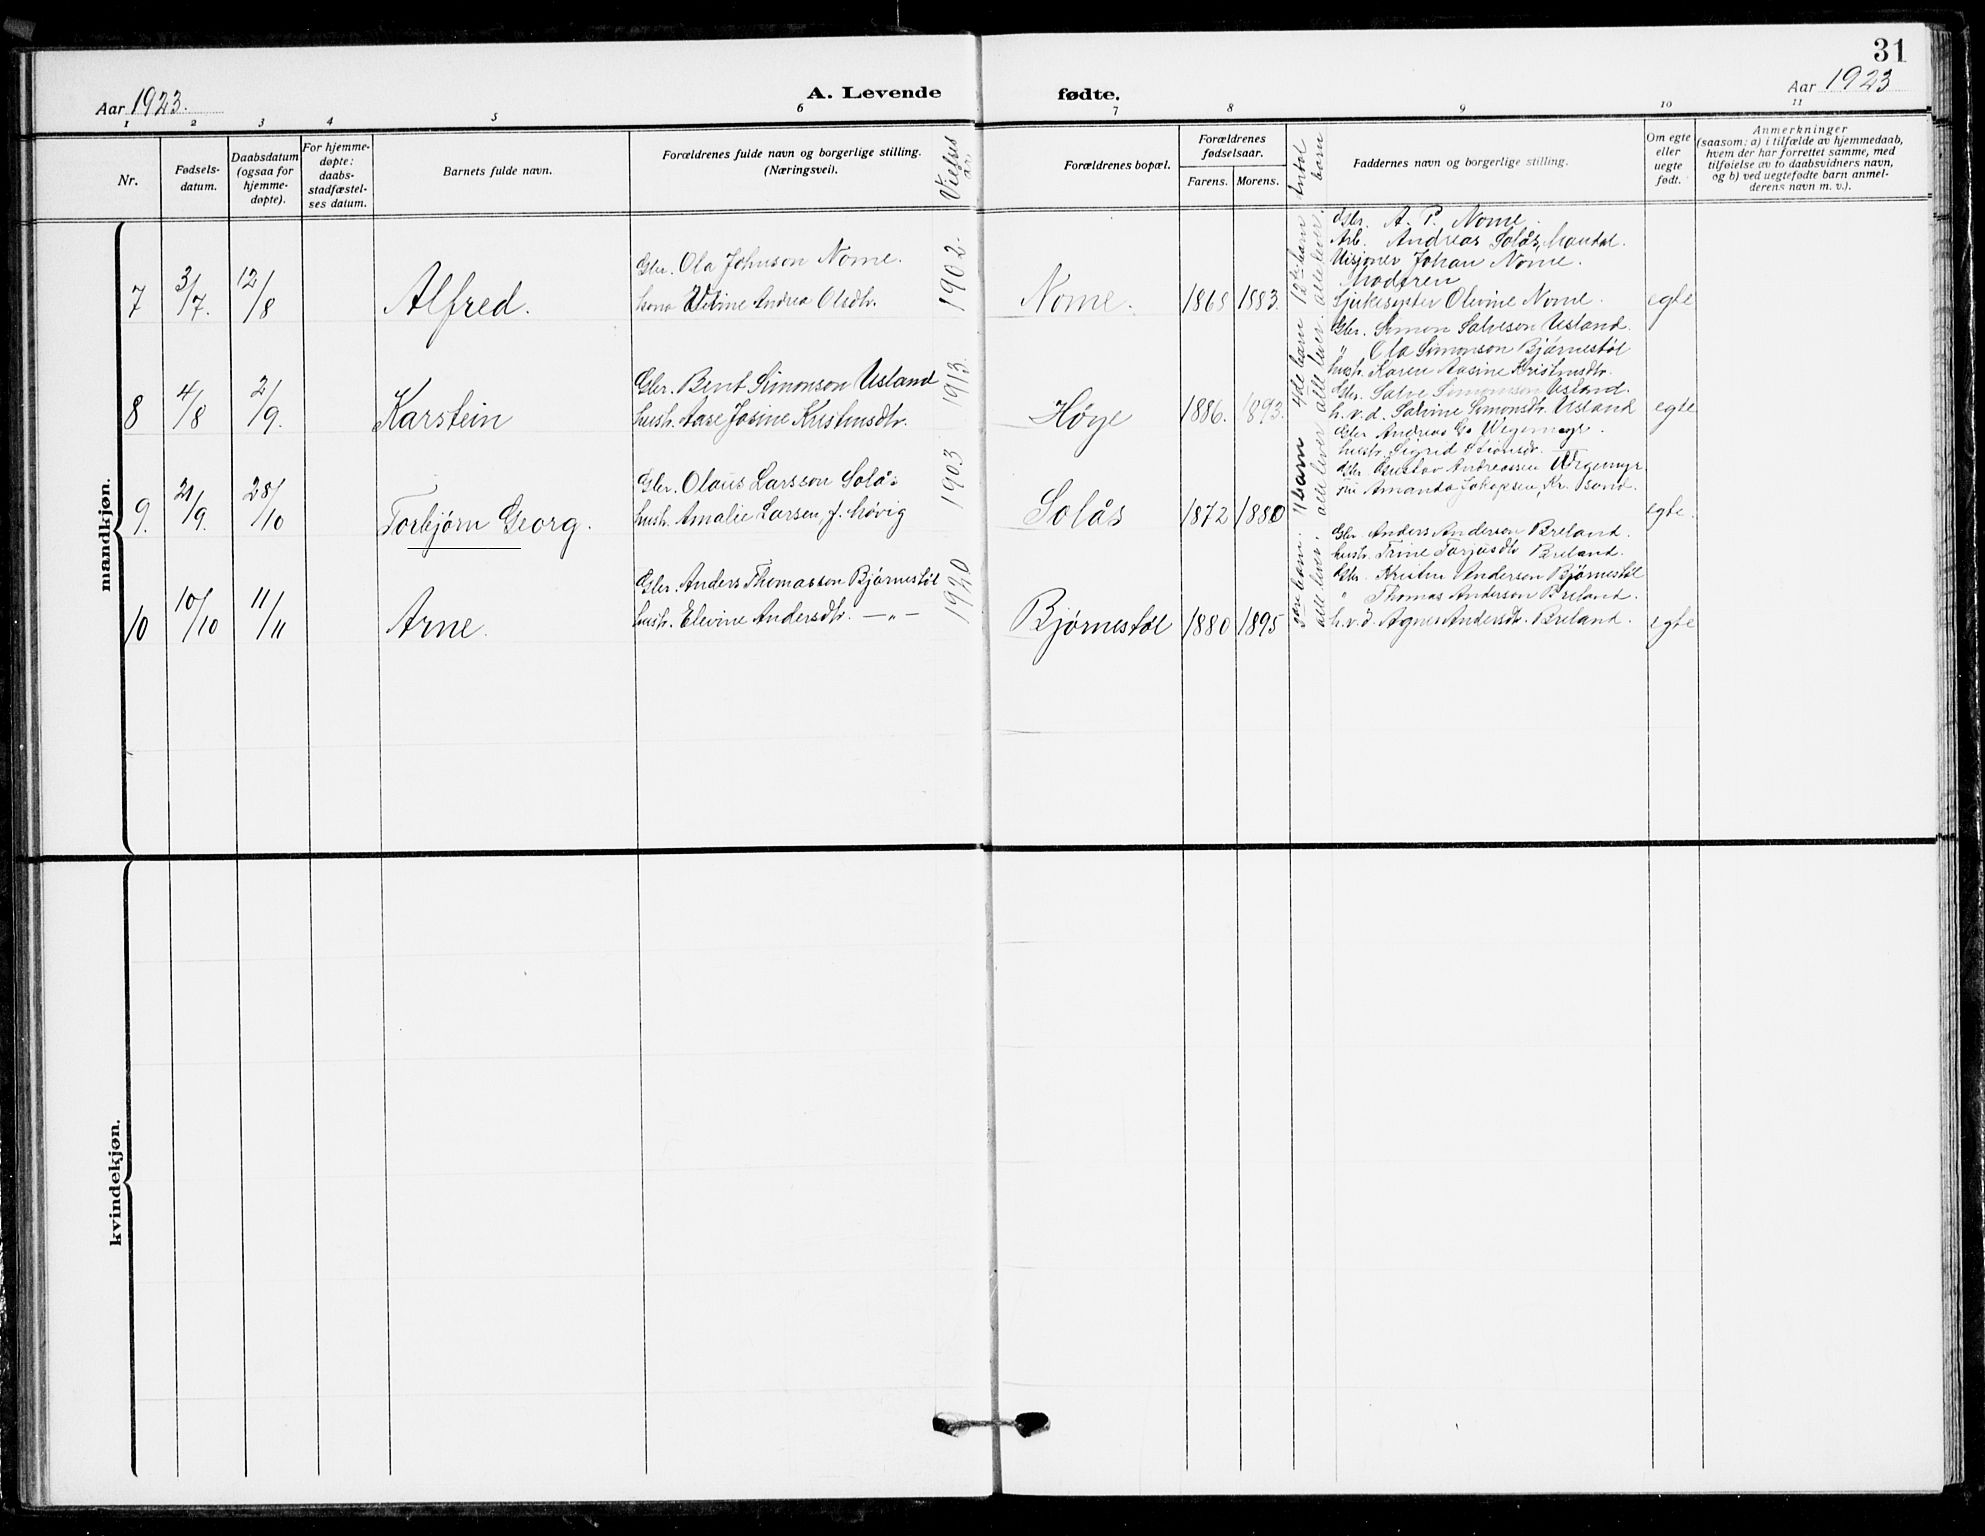 31
Aar 1923.
A. Levende fødte.
Aar 1923
1 2 3 4 5 6 7 8 9 10 11
Nr.
Fødsels-
datum.
Daabsdatum
(ogsaa for
hjemme-
døpte).
For hjemme-
døpte:
daabs-
stadfæstel-
ses datum.
Barnets fulde navn.
Forældrenes fulde navn og borgerlige stilling.
(Næringsvei).
Vielses
Forældrenes bopæl.
Forældrenes
fødselsaar.
Farens. Morens.
Antal
barn
Faddernes navn og borgerlige stilling.
Om egte
eller
uegte
født.
Anmerkninger
(saasom: a) i tilfælde av hjemmedaab,
hvem der har forrettet samme, med
tilføielse av to daabsvidners navn,
og b) ved uegtefødte barn anmel-
derens navn m. v.).
mandkjøn.
7 3/7. 12/8 Alfred.
Gbr. Ola Johnson Nome.
kona Andrea Olsdtr.
1902.
Nome. 1865 1883.
12te barn
alle lever.
Gbr. A. P. Nome.
Arb. Andreas Solås, Mandal.
Misjonær Johan Nome.
Moderen
Sjukesyster Olevine Nome.
egte
8 4/8 2/9. Karstein
Gbr. Bent Simonson Usland
hustr. Aase Josine Kristensdtr.
1913.
Høye 1886. 1893.
4de barn
alle lever.
Gbr. Simon Salveson Usland.
" Ola Simonson Bjørnestøl
hustr. Karen Aasine Kristensdtr.
Gbr. Salve Simonson Usland.
h. v. d. Salvine Simonsdtr. Usland
egte
9. 21/9. 28/10 Torbjørn Georg.
Gbr. Olaus Larsson Solås
hustr. Amalie Larsen, f. Høvig
1903
Solås 1872 1880
11 barn
alle lever
Gbr Andreas G. Wegemyr.
hustr. Sigrid
Gbr. Gustav Andreassen Wegemyr
Amanda Jakobsen, Kr. sand.
egte.
10 10/10 11/11 Arne.
Gbr. Anders Thomasson Bjørnestøl
hustr. Elevine Andersdtr. —"—
1920
Bjørnestøl 1880 1895
barn.
alle lever.
Gbr. Anders Anderson Breland.
hustr. Trine Torjusdtr Breland.
Gbr. Kristen Anderson Bjørnestøl
" Thomas Anderson Breland.
h. v. d. Agnes Andersdtr. Breland.
egte
kvindekjøn.